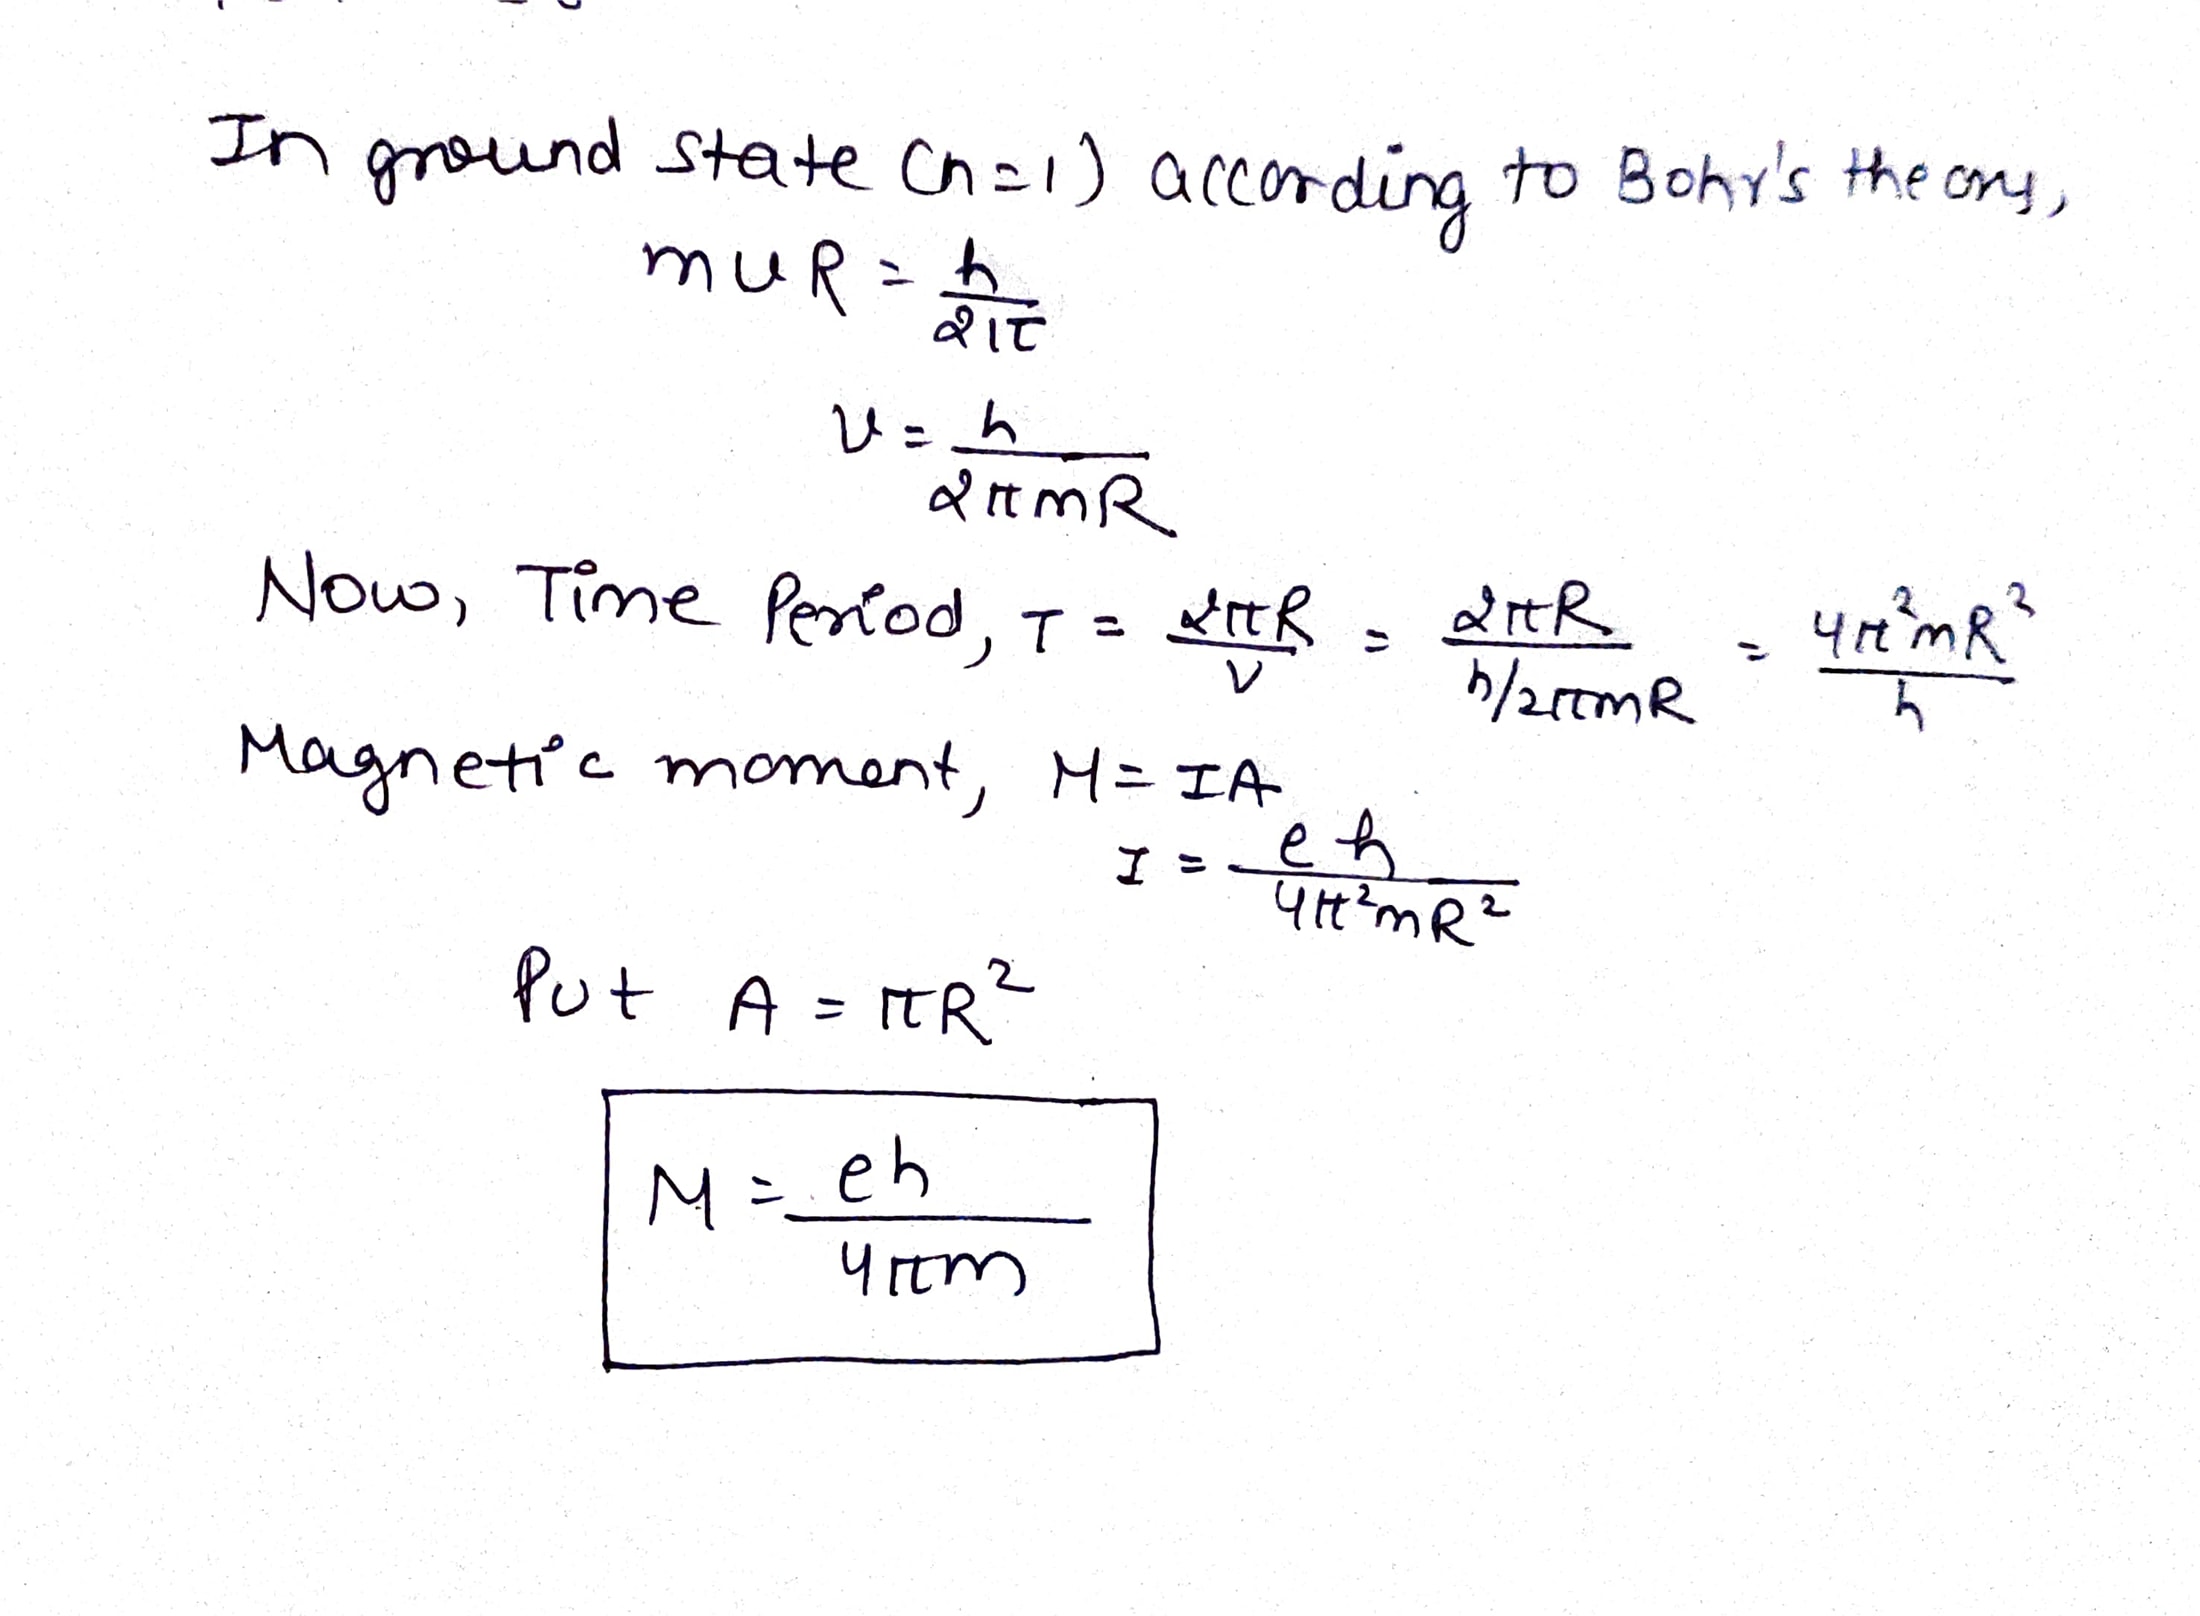 In ground state (n=1) according to Bohr's theory,
mvR = h/2π
v = h/2πmR
Now, Time Period, T = 2πR/v = 2πR/h/2πmR = 4π²mR²/h
Magnetic moment, M = IA
I = eh/4π²mR²
Put A = πR²
M = eh/4πm